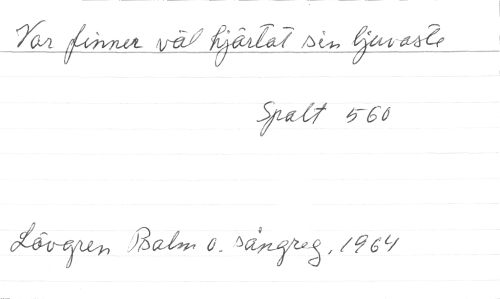 Var finner väl hjärtat sin ljuvaste
Spalt 560
Lövgren Psalm o. sångreg. 1964